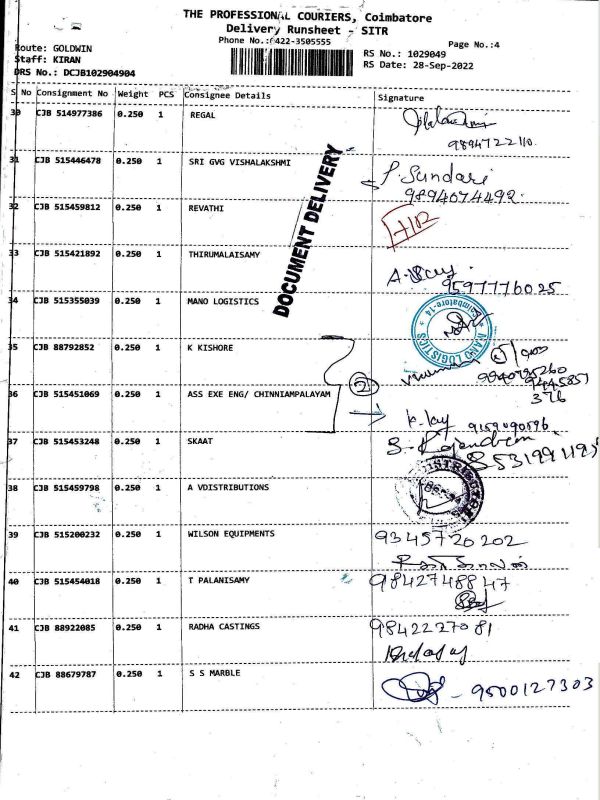 THE PROFESSIONAL COURIERS, Coimbatore
Delivery Runsheet - SITR
Phone No.:0422-3505555
Page No.:4
Route: GOLDWIN
RS No.: 1029049
Staff: KIRAN
RS Date: 28-Sep-2022
DRS No.: DCJB102904904
S No Consignment No Weight PCS Consignee Details Signature
30 CJB 514977386 0.250 1 REGAL
9894722110.
31 CJB 515446478 0.250 1 SRI GVG VISHALAKSHMI P. Sundari
9894074492.
32 CJB 515459812 0.250 1 REVATHI
DOCUMENT DELIVERY
33 CJB 515421892 0.250 1 THIRUMALAISAMY
9597776025
34 CJB 515355039 0.250 1 MANO LOGISTICS
MANO LOGISTICS
Coimbatore-14
35 CJB 88792852 0.250 1 K KISHORE
2
36 CJB 515451069 0.250 1 ASS EXE ENG/ CHINNIAMPALAYAM
376
9159090596
37 CJB 515453248 0.250 1 SKAAT
38 CJB 515459798 0.250 1 A VDISTRIBUTIONS
39 CJB 515200232 0.250 1 WILSON EQUIPMENTS 9345720202
40 CJB 515454018 0.250 1 T PALANISAMY 9842748847
41 CJB 88922085 0.250 1 RADHA CASTINGS 9842227081
42 CJB 88679787 0.250 1 S S MARBLE
- 9500127303